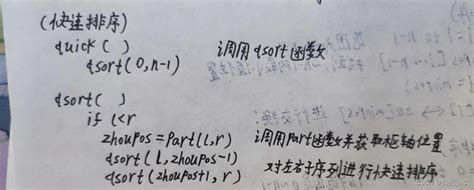 (快速排序)
quick( )
qsort(0,n-1) 调用qsort函数
qsort( )
if l<r
zhouPos=Part(l,r) 调用Part函数并获取枢轴位置
qsort(l,zhouPos-1) 对左右子序列进行快速排序
qsort(zhouPos+1,r)